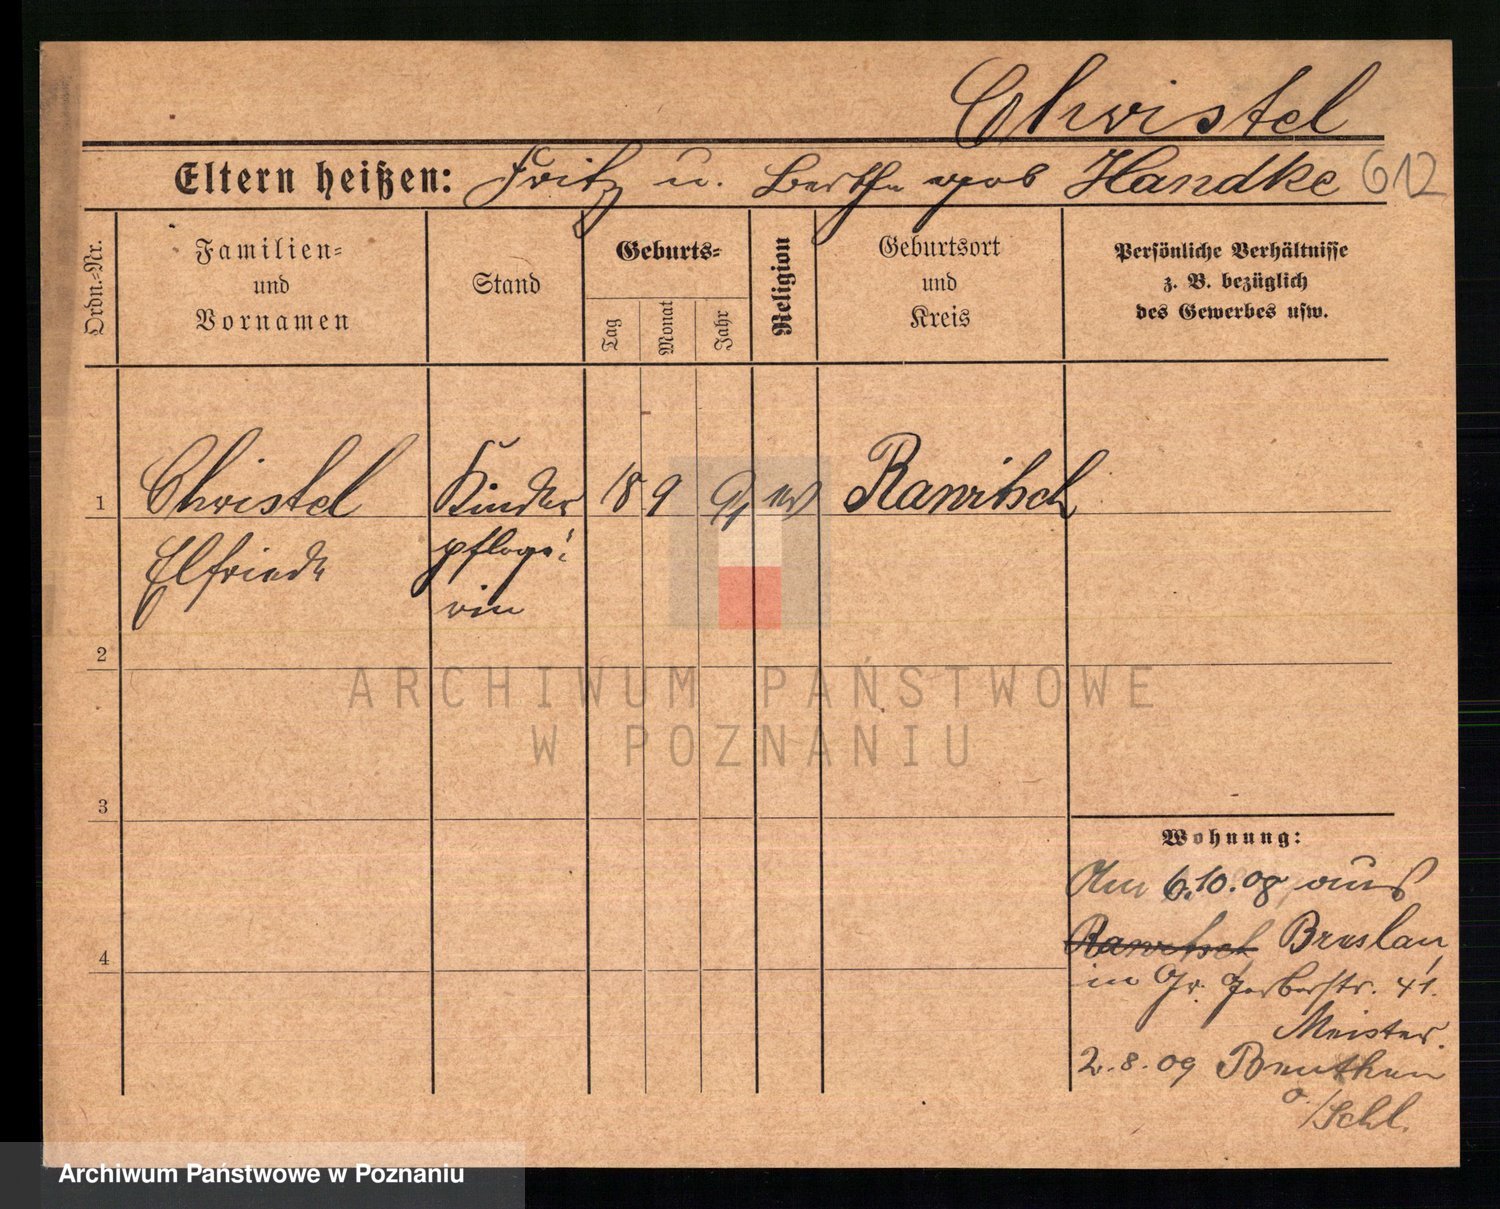 Christel
Eltern heißen: Fritz u. Berthe geb Handke 612
Ordn.-Nr.
Familien-
und
Vornamen
Stand
Geburts-
Tag
Monat
Jahr
Religion
Geburtsort
und
Kreis
Persönliche Verhältnisse
z. B. bezüglich
des Gewerbes usw.
1 Christel Kinder 18 9 91 ev Rawitsch
Elfriede pflege-
rin
2
3
Wohnung:
Am 6.10.08 aus
Rawitsch Breslau,
4
in Gr. Gerberstr. 41.
Meister.
2.8.09 Beuthen
O/Schl.
ARCHIWUM PAŃSTWOWE
W POZNANIU
Archiwum Państwowe w Poznaniu